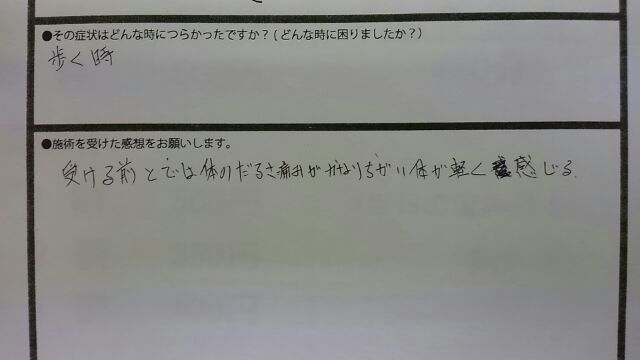 ●その症状はどんな時につらかったですか？(どんな時に困りましたか？)
歩く時
●施術を受けた感想をお願いします。
受ける前とでは体のだるさ痛みがかなりちがい体が軽く感じる.